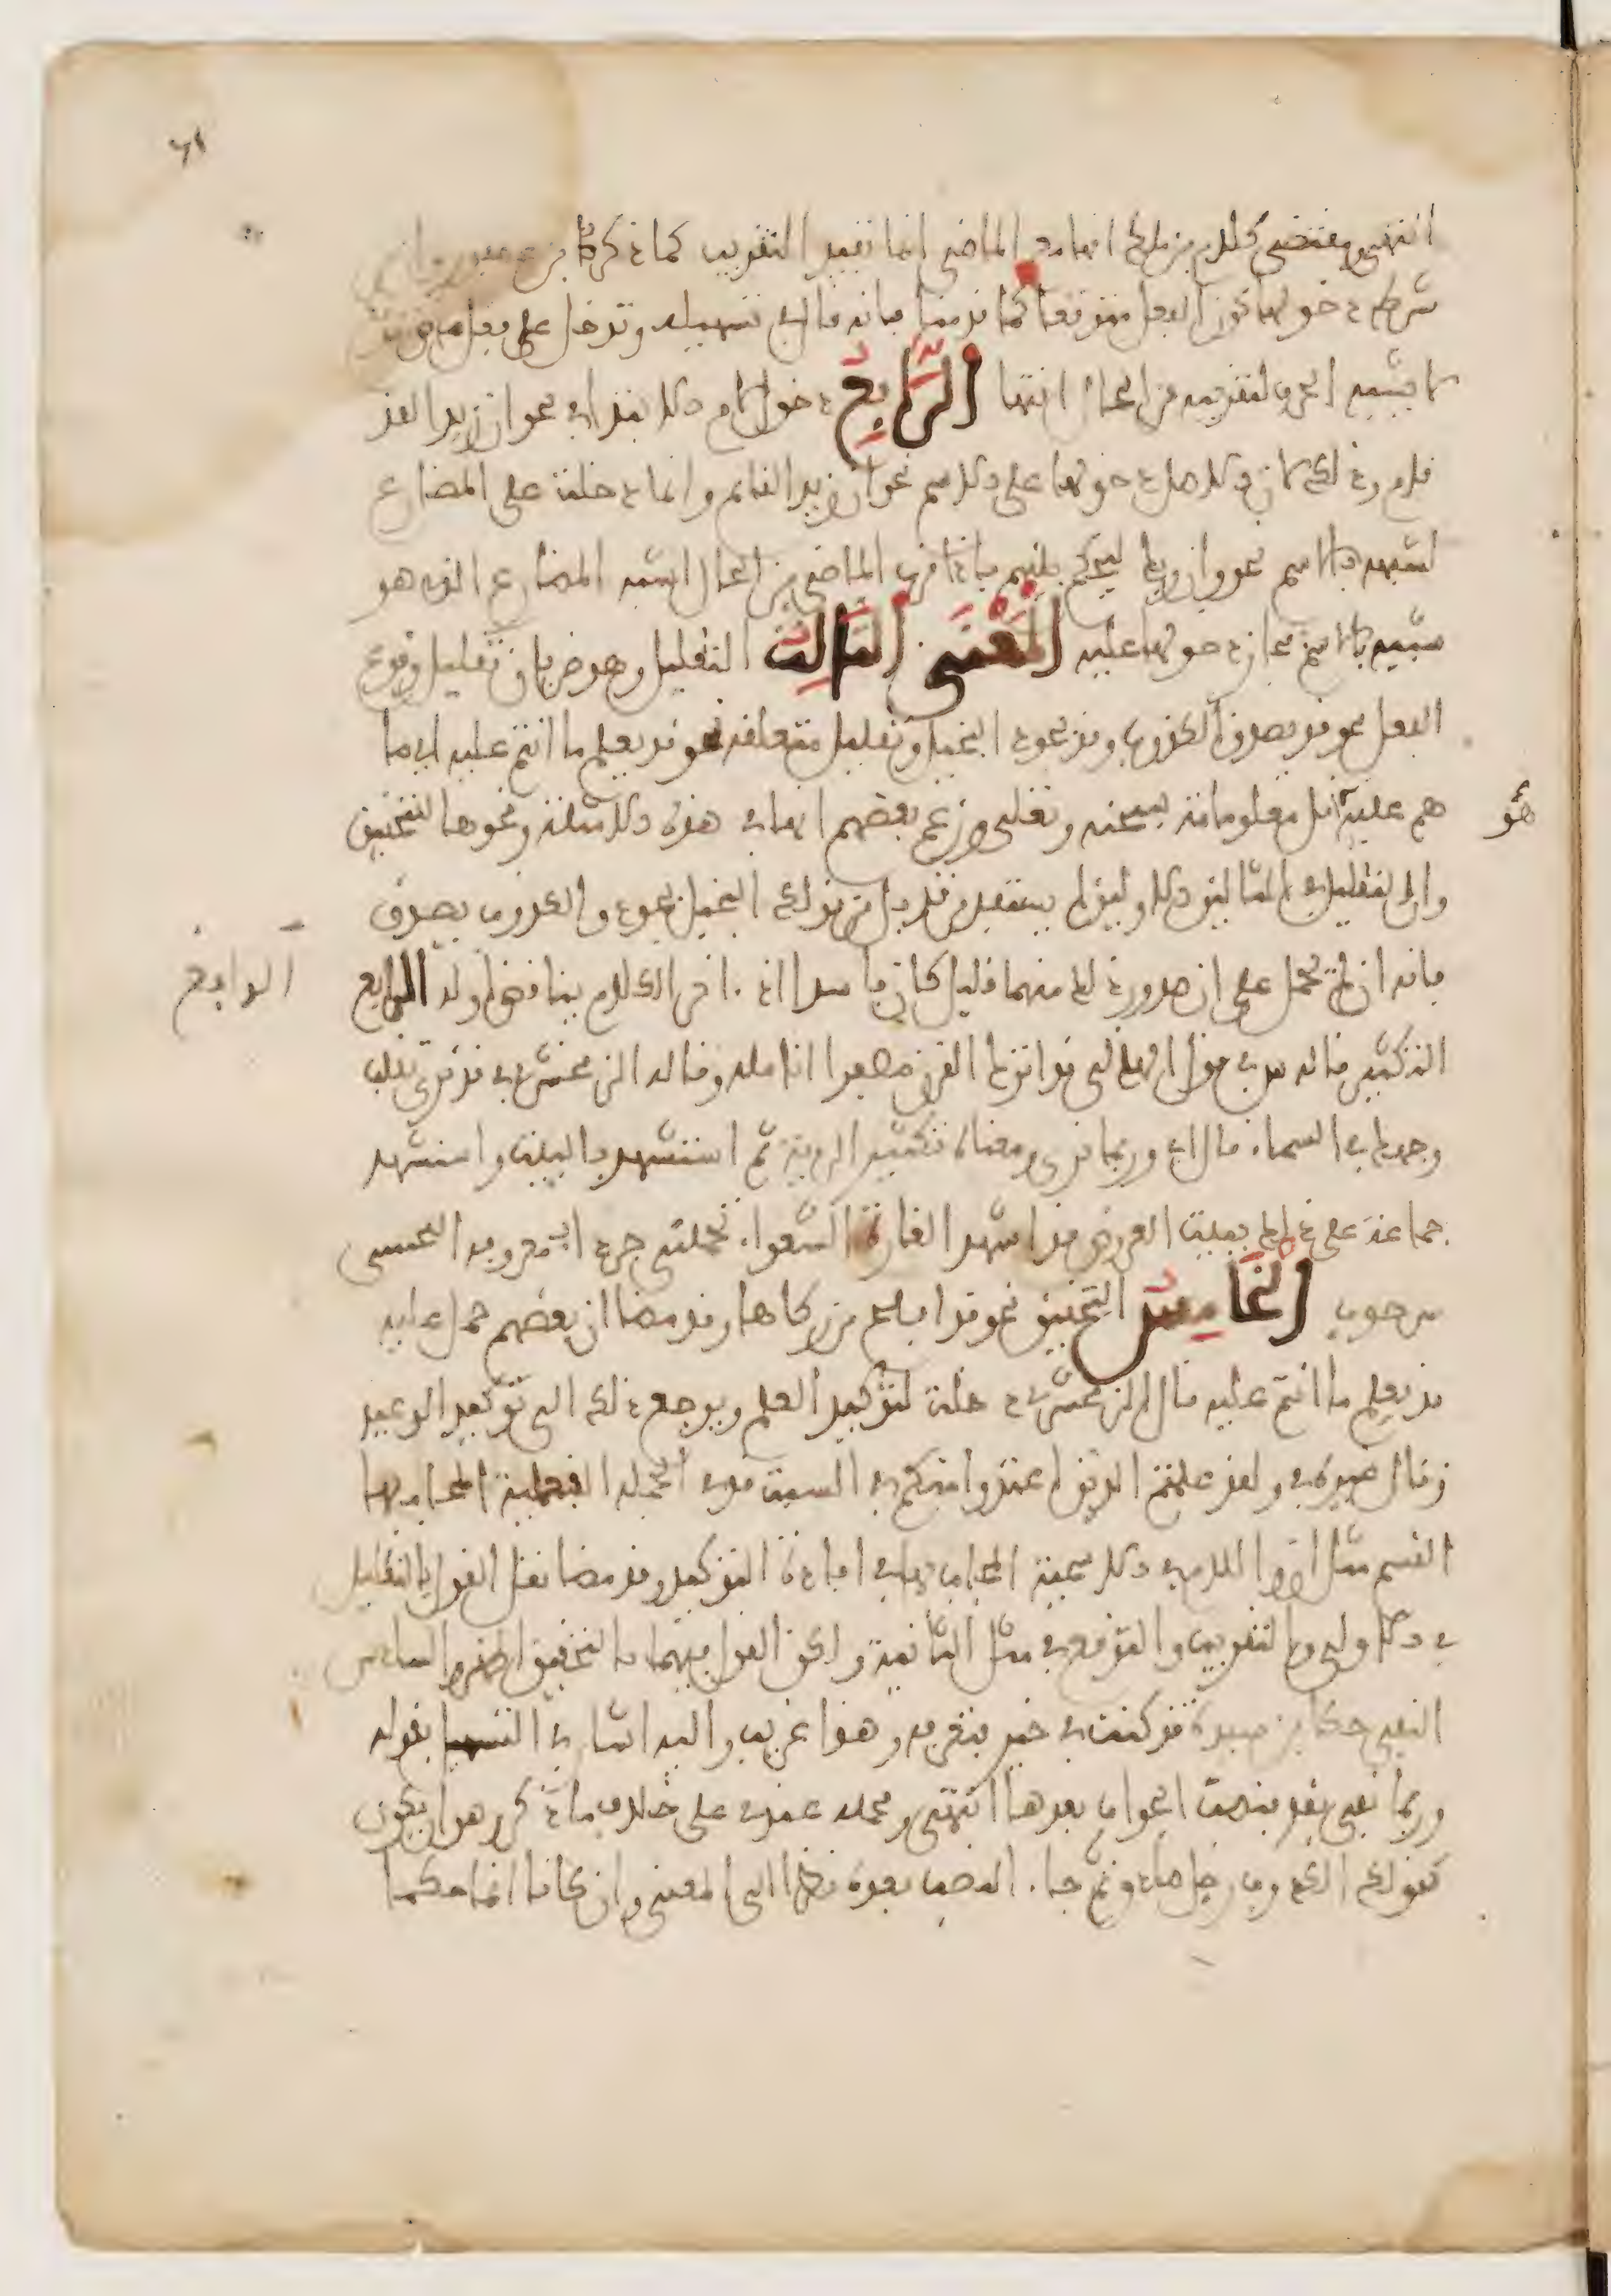 ٦١
انتهى ومقتضى كلام بن ملك انها مع الماضي انما تفيد التقريب كما ذكره بن عصفور وان من
شرط دخولها كون الفعل متوقعا كما قدمنا فانه قال في تسهيله وتدخل على فعل ماض متوقع
لا يشبه الحرف لتقريبه من الحال انتها الرَّابِعُ دخول لام الابتداء في نحو ان زيدا لقد
قام وذلك لان الاصل دخولها على الاسم نحو ان زيدا لقائم وانما دخلت على المضارع
لشبهه بالاسم نحو وان ربك ليحكم بينهم فاذا قرب الماضي من الحال اشبه المضارع الذي هو
شبيه بالاسم فجاز دخولها عليه الْمَعْنَى الثَّالِث التقليل وهو ضربان تقليل وقوع
الفعل نحو قد يصدق الكذوب وقد يجود البخيل وتقليل متعلقه نحو قد يعلم ما انتم عليه اي ما
هم عليه اقل معلوماته سبحنه وتعلى وزعم بعضهم انها في هذه الامثلة ونحوها للتحقيق
هو
وان التقليل في المثالين الاولين لم يستفد من قد بل من قولك البخيل يجود والكذوب يصدق
فانه ان لم يحمل على ان صدور ذلك منهما قليل كان فاسدا اذ اخر الكلام يناقض اوله الرابع
الرابع
التكثير قاله س في قول الهذلي قد اترك القرن مصفرا انامله وقاله الزمخشري في قد نرى تقلب
وجهك في السماء قال اي وربما نرى ومعناه تكثير الروية ثم استشهد بالبيت واستشهد
جماعة على ذلك ببيت العروض قد اشهد الغارة الشعواء تحملني جرداء معروقة اللحيين
سرحوب الْخَامِسُ التحقيق نحو قد افلح من زكاها وقد مضا ان بعضهم حمل عليه
قد يعلم ما انتم عليه قال الزمخشري دخلت لتوكيد العلم ويرجع ذلك الى توكيد الوعيد
وقال غيره في ولقد علمتم الذين اعتدوا منكم في السبت قد في الجملة الفعلية المجاب بها
القسم مثل ان واللام في الاسمية المجاب بها في افادة التوكيد وقد مضا نقل القول بالتقليل
في الاولى والتقريب والتوقع في مثل الثانية ولكن القول فيهما بالتحقيق اظهر السادس
النفي حكا بن سيده قد كنت في خير فتعرفه وهذا غريب واليه اشار في التسهيل بقوله
وربما نفي بقد فنصب الجواب بعدها انتهى ومحمله عندي على خلاف ما ذكر وهو ان يكون
كقولك الكذوب رجل صادق ثم جاء النصب بعده نظرا الى المعنى وان كانا انما حكما